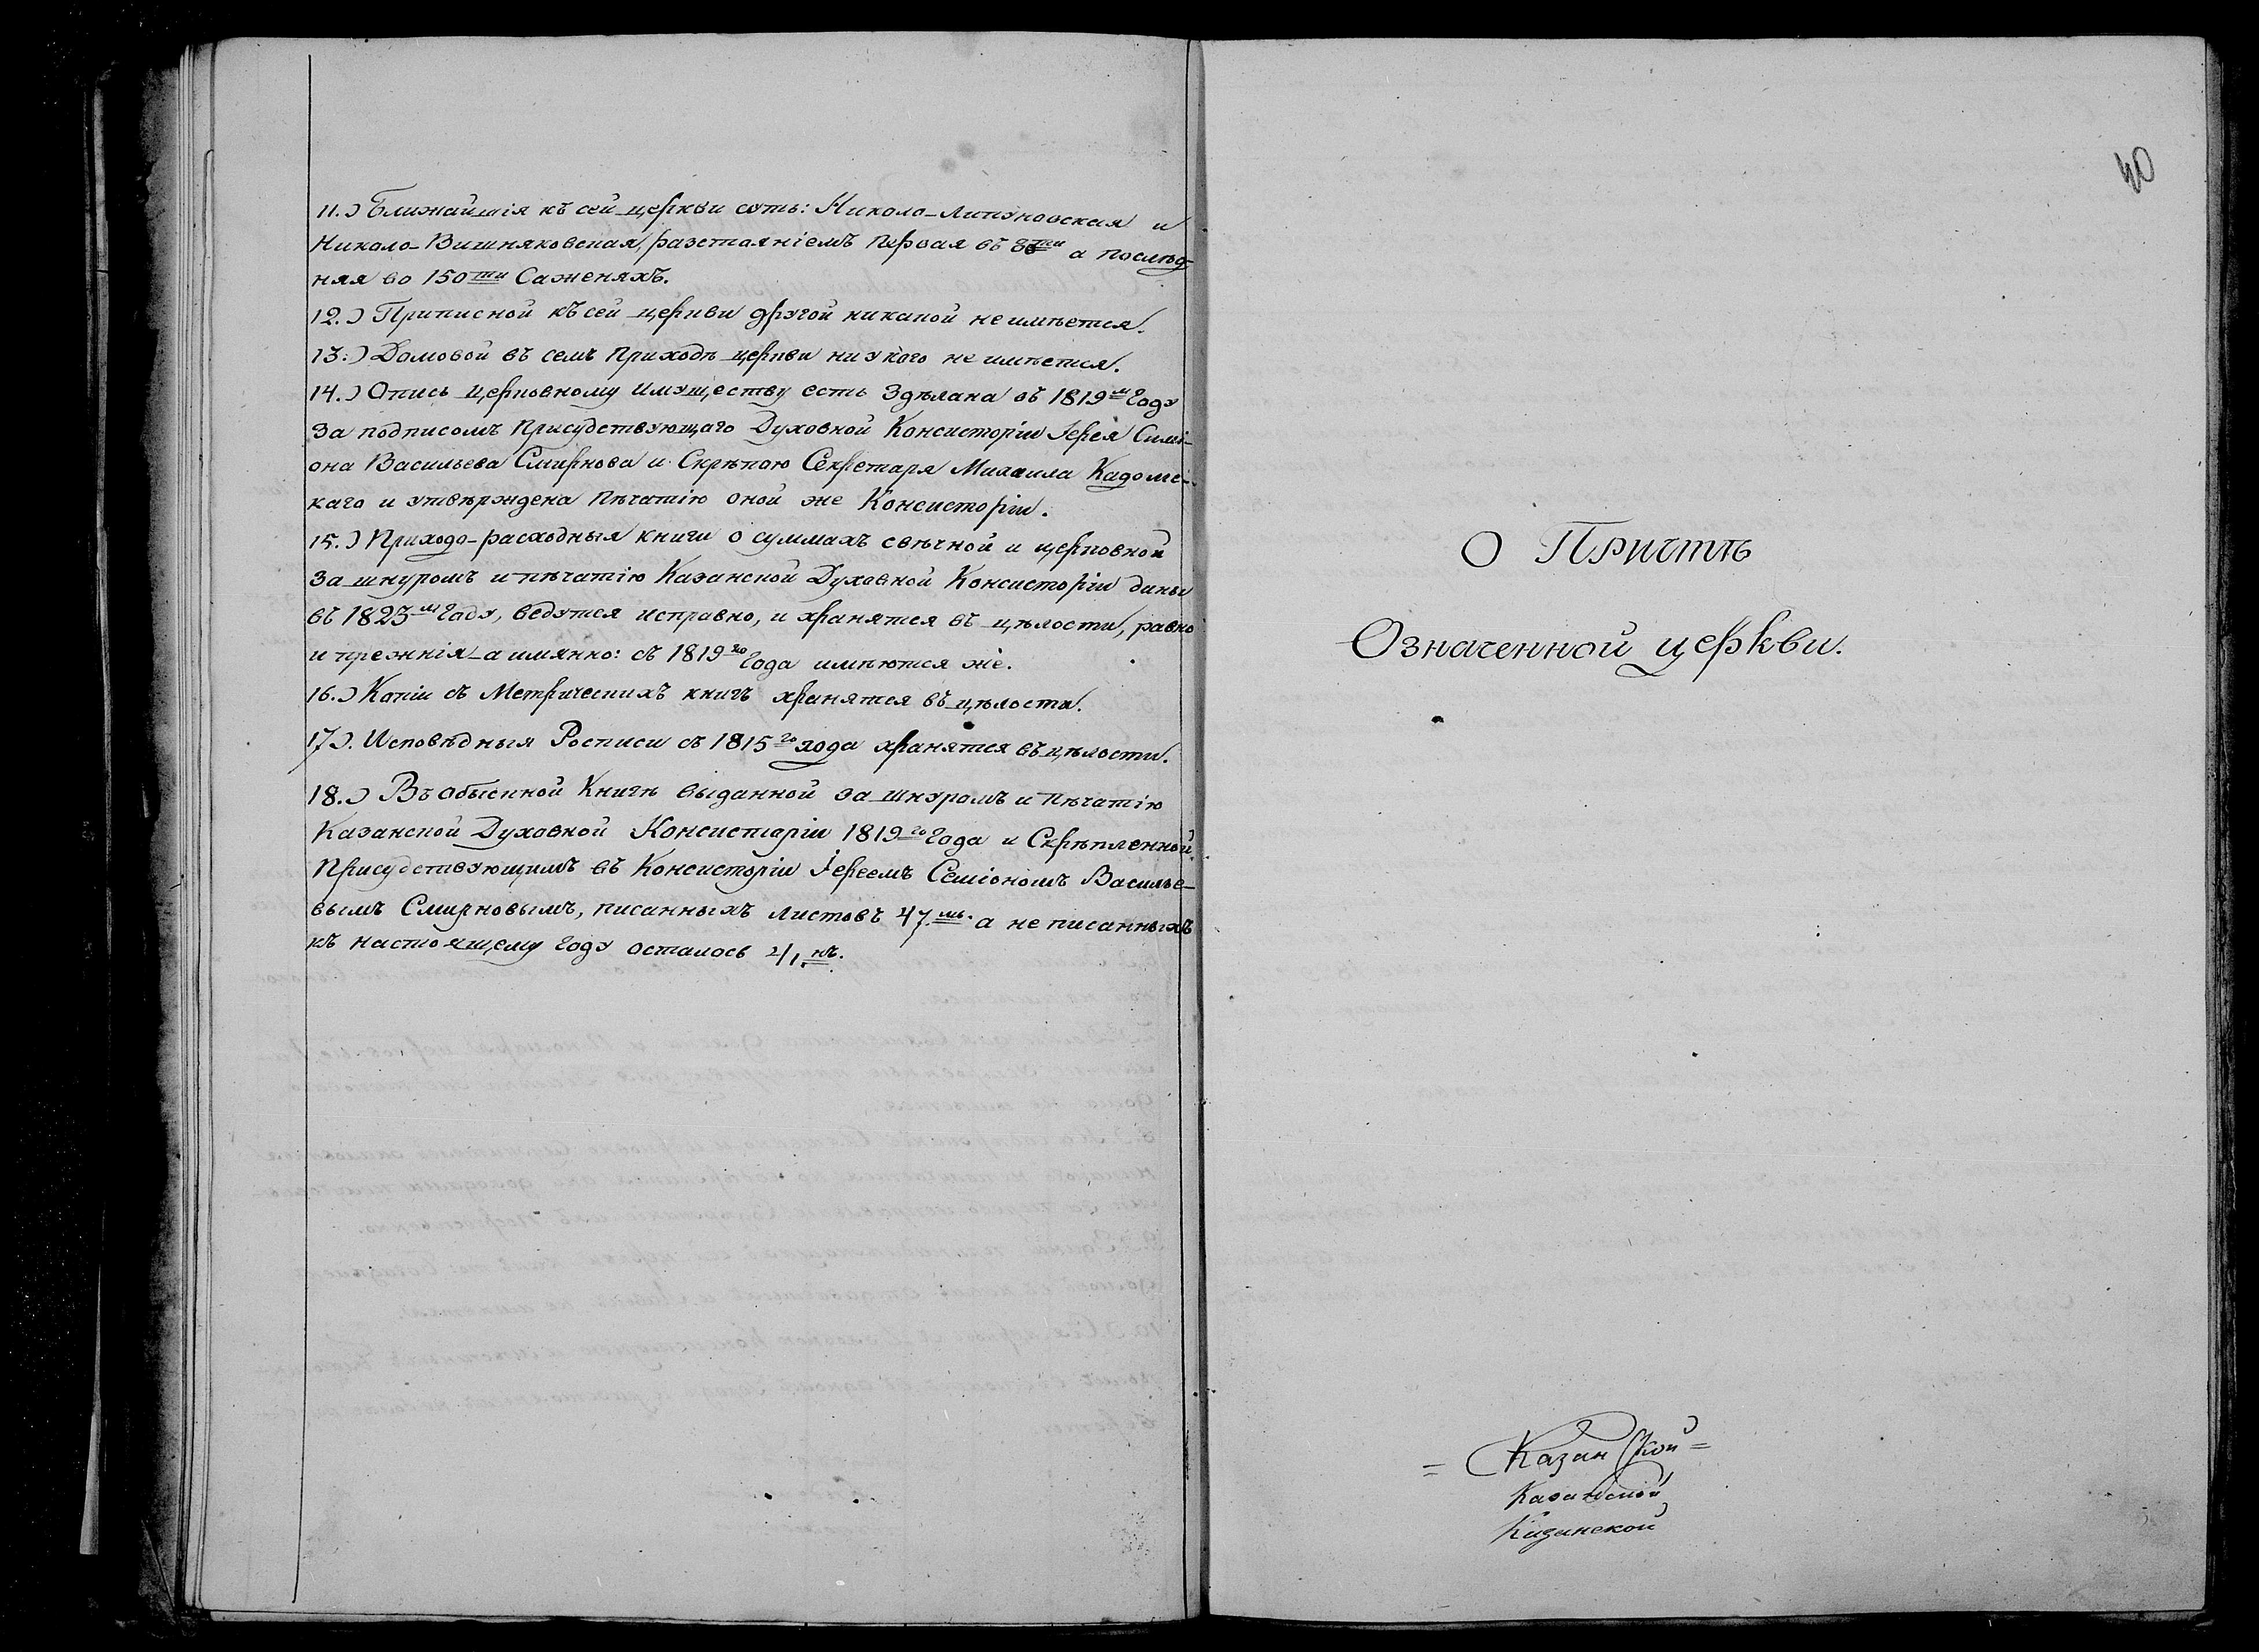 11.) Ближайшія къ сей церкви суть: Николо-Ляпуновская и
Николо-Вишняковская, разстояніемъ первая въ 80ти а послѣд-
няя во 150ти Саженяхъ.
12.) Приписной къ сей церкви другой никакой не имѣется.
13.) Домовой въ семъ приходѣ церкви ни у кого не имѣется.
14.) Опись церковному имуществу есть здѣлана въ 1819м Году
За подписомъ Присудствующаго Духовной Консисторіи Іерея Симі-
она Васильева Смирнова и Скрѣпою Секретаря Михаила Кадомс-
каго и утверждена пѣчатію оной же Консисторіи.
15.) Приходо-расходныя книги о суммахъ свѣчной и церковной
За шнуромъ и пѣчатію Казанской Духовной Консисторіи даны
въ 1823м Году, ведутся исправно, и хранятся въ цѣлости, равно
и прежнія а имянно: съ 1819го Года имѣются же.
16.) Копіи съ Метрическихъ книгъ хранятся въ цѣлости.
17). Исповѣдныя Росписи съ 1815го года хранятся въ цѣлости.
18.) Въ обыскной Книгѣ выданной за шнуромъ и пѣчатію
Казанской Духовной Консисторіи 1819го Года и Скрѣпленной
Присудствующимъ въ Консисторіи Іереемъ Семіономъ Василье-
вымъ Смирновымъ, писанныхъ листовъ 47.мь. а не писанныхъ
къ настоящему году осталось 41.нъ.
40
О Причтѣ
Означенной церкви.
= Казанской =
Казанской
Казанской